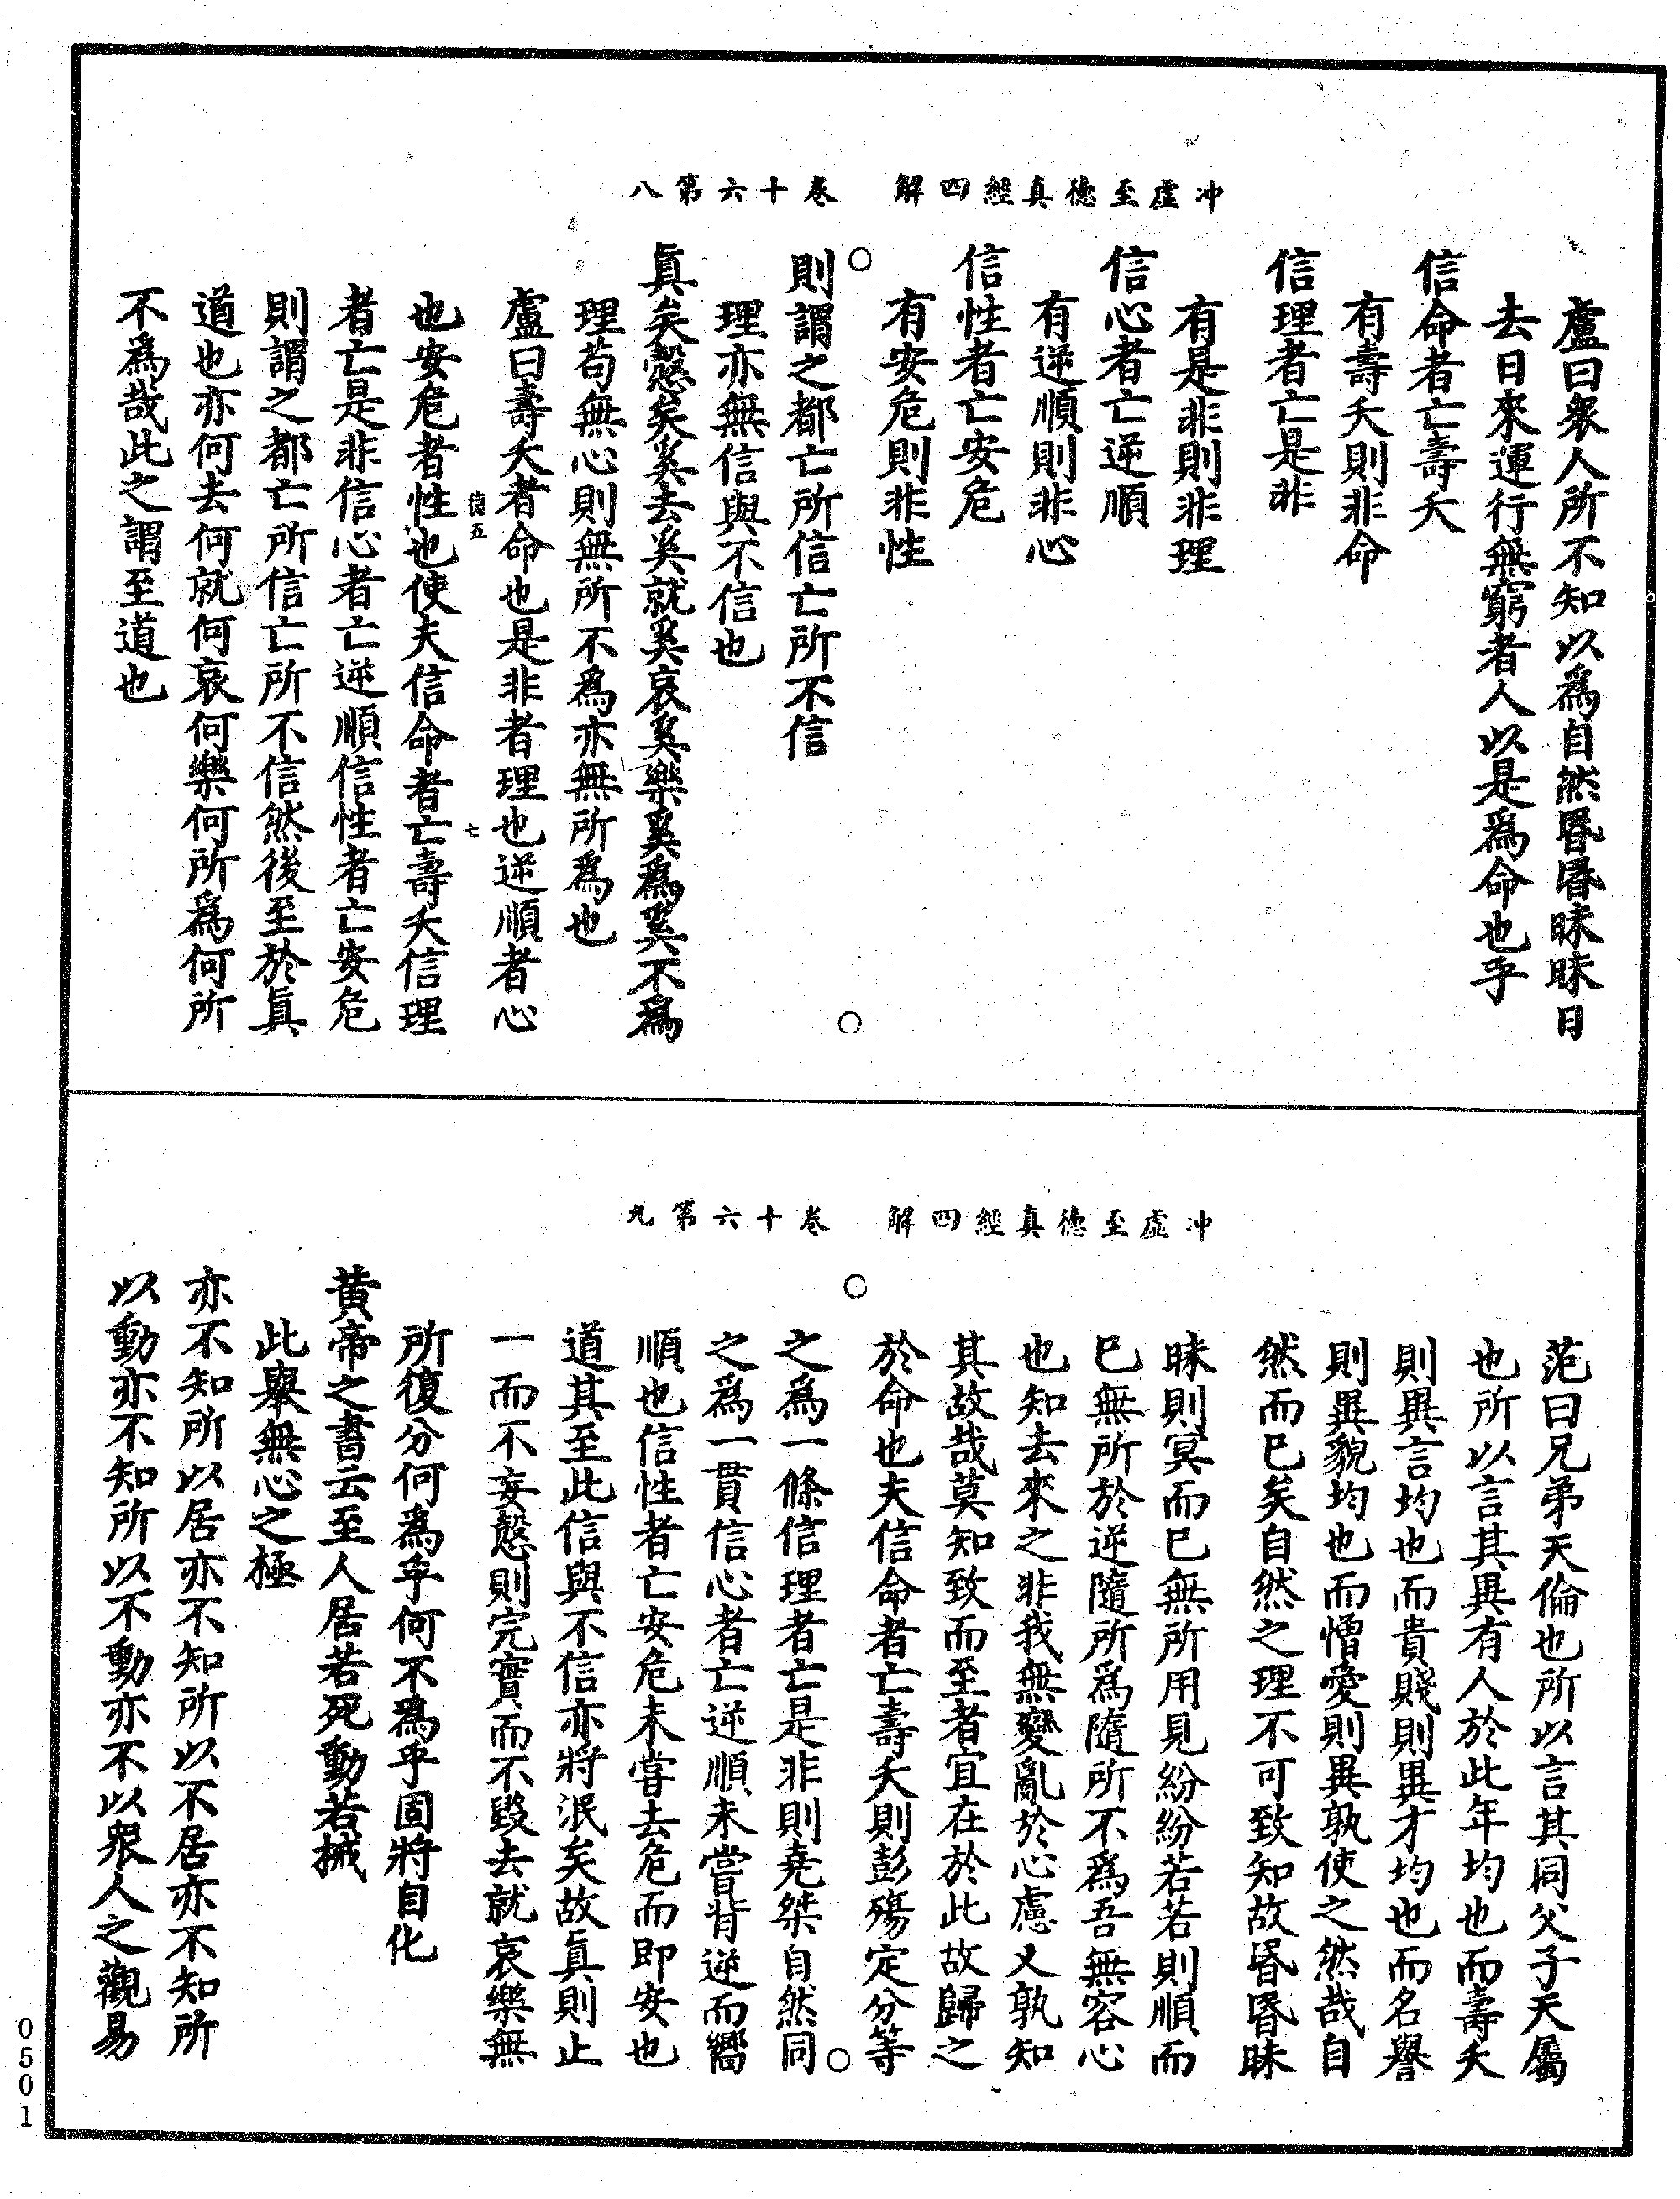 冲虛至德真經四解　卷十六第八
盧曰衆人所不知以爲自然昬昬昧昧日
去日來運行無窮者人以是爲命也乎
信命者亡壽夭
有壽夭則非命
信理者亡是非
有是非則非理
信心者亡逆順
有逆順則非心
信性者亡安危
有安危則非性
則謂之都亡所信亡所不信
理亦無信與不信也
眞矣慤矣奚去奚就奚哀奚樂奚爲奚不爲
理苟無心則無所不爲亦無所爲也
盧曰壽夭者命也是非者理也逆順者心
也安危者性也使夫信命者亡壽夭信理
者亡是非信心者亡逆順信性者亡安危
則謂之都亡所信亡所不信然後至於眞
道也亦何去何就何哀何樂何所爲何所
不爲哉此之謂至道也
冲虛至德真經四解　卷十六第九
范曰兄弟天倫也所以言其同父子天屬
也所以言其異有人於此年均也而壽夭
則異言均也而貴賤則異才均也而名譽
則異貌均也而憎愛則異孰使之然哉自
然而已矣自然之理不可致知故昬昬昧
昧則冥而已無所用見紛紛若若則順而
已無所於逆隨所爲隨所不爲吾無容心
也知去來之非我無變亂於心慮又孰知
其故哉莫知致而至者宜在於此故歸之
於命也夫信命者亡壽夭則彭殤定分等
之爲一條信理者亡是非則堯桀自然同
之爲一貫信心者亡逆順未嘗背逆而嚮
順也信性者亡安危未嘗去危而即安也
道其至此信與不信亦將泯矣故眞則止
一而不妄慤則完實而不毀去就哀樂無
所復分何爲乎何不爲乎固將自化
黃帝之書云至人居若死動若械
此舉無心之極
亦不知所以居亦不知所以不居亦不知所
以動亦不知所以不動亦不以衆人之觀易
0501